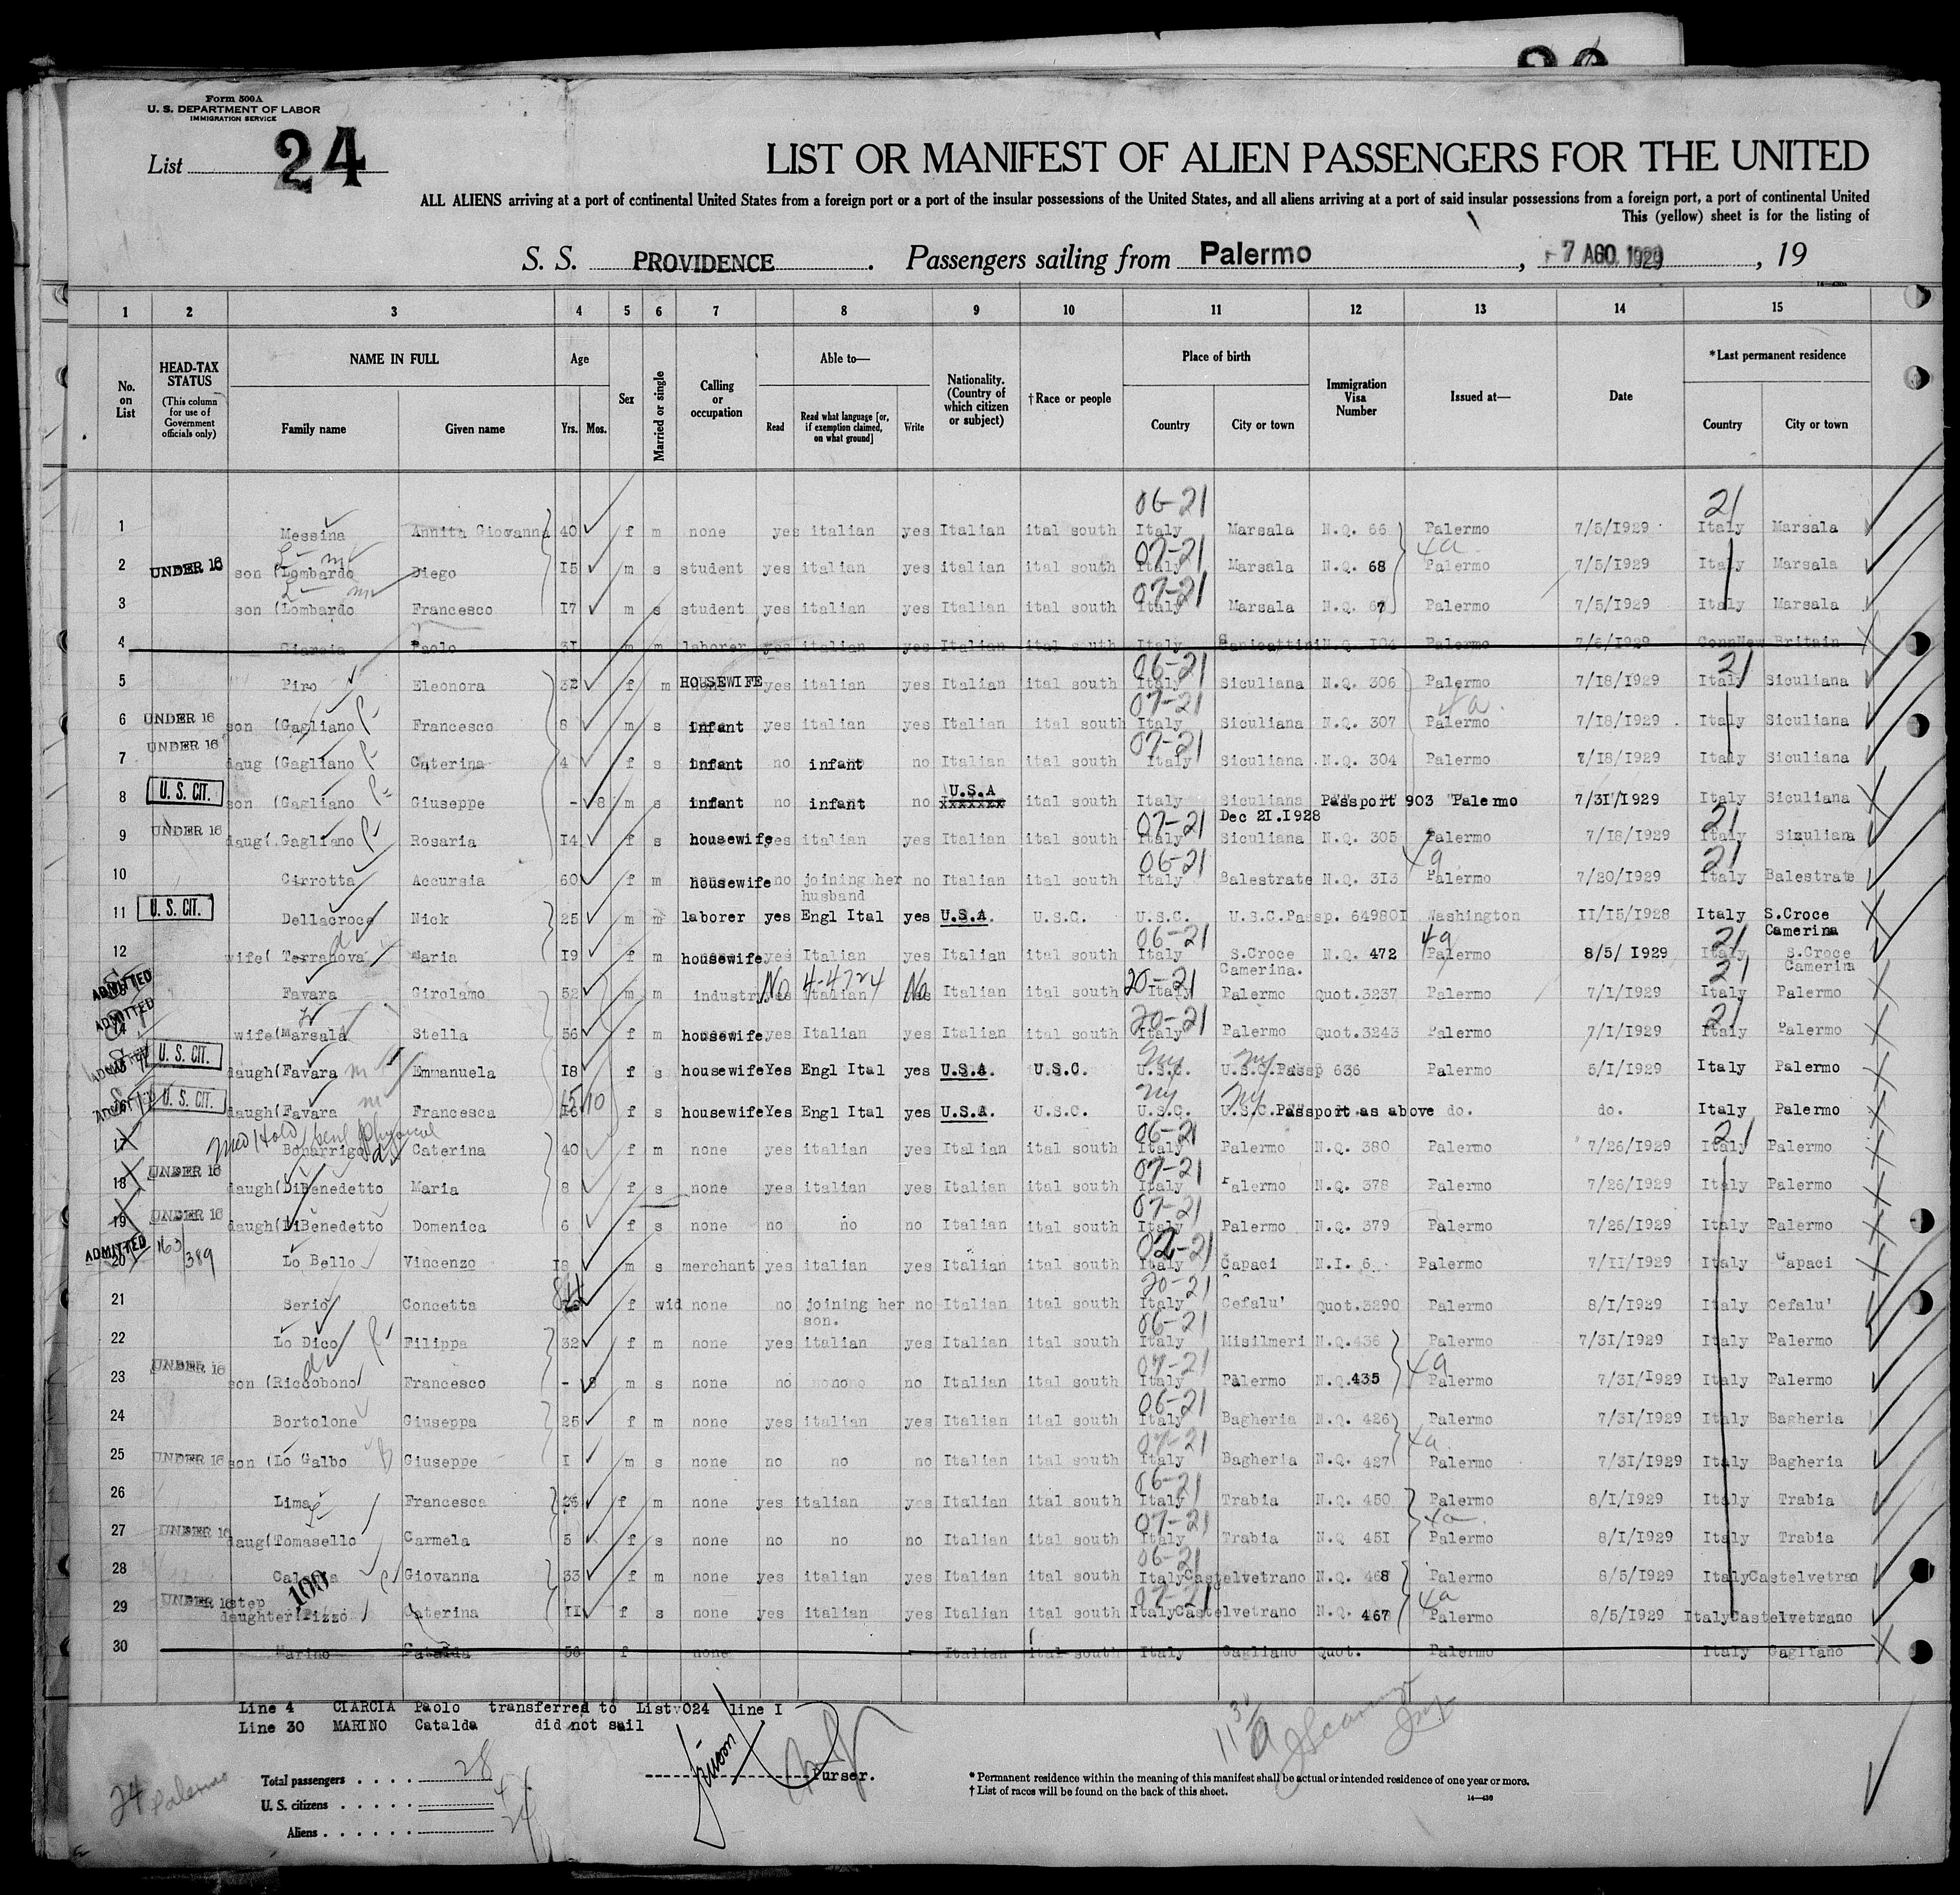 Form 500A
U. S. DEPARTMENT OF LABOR
IMMIGRATION SERVICE
List 24
LIST OR MANIFEST OF ALIEN PASSENGERS FOR THE UNITED
ALL ALIENS arriving at a port of continental United States from a foreign port or a port of the insular possessions of the United States, and all aliens arriving at a port of said insular possessions from a foreign port, a port of continental United
This (yellow) sheet is for the listing of
S. S. PROVIDENCE . Passengers sailing from Palermo , 7 AGO. 1929 , 19
1 2 3 4 5 6 7 8 9 10 11 12 13 14 15
No. on List
HEAD-TAX STATUS (This column for use of Government officials only)
NAME IN FULL Family name Given name
Age Yrs. Mos.
Sex
Married or single
Calling or occupation
Able to— Read Read what language [or, if exemption claimed, on what ground] Write
Nationality. (Country of which citizen or subject)
†Race or people
Place of birth Country City or town
Immigration Visa Number
Issued at—
Date
*Last permanent residence Country City or town
06-21 21
1 Messina Annita Giovanna 40 f m none yes italian yes Italian ital south Italy Marsala N.Q. 66 Palermo 7/5/1929 Italy Marsala
07-21 4a
2 UNDER 16 son (Lombardo Diego 15 m s student yes italian yes italian ital south Italy Marsala N.Q. 68 Palermo 7/5/1929 Italy Marsala
07-21
3 son (Lombardo Francesco 17 m s student yes italian yes Italian ital south Italy Marsala N.Q. 67 Palermo 7/5/1929 Italy Marsala
4 Ciarcia Paolo 31 m m laborer yes italian yes Italian ital south Italy Canicattini N.Q. 104 Palermo 7/6/1929 Conn New Britain
06-21 21
5 Piro Eleonora 32 f m HOUSEWIFE yes italian yes Italian ital south Italy Siculiana N.Q. 306 Palermo 7/18/1929 Italy Siculiana
07-21 4a
6 UNDER 16 son (Gagliano Francesco 8 m s infant yes italian yes Italian ital south Italy Siculiana N.Q. 307 Palermo 7/18/1929 Italy Siculiana
07-21
7 UNDER 16 daug (Gagliano Caterina 4 f s infant no infant no Italian ital south Italy Siculiana N.Q. 304 Palermo 7/18/1929 Italy Siculiana
8 U. S. CIT. son (Gagliano Giuseppe - 8 m s infant no infant no U.S.A xxxxxxx ital south Italy Siculiana Passport 903 Palermo 7/31/1929 Italy Siculiana
Dec 21.1928
07-21 21
9 UNDER 16 daug(.Gagliano Rosaria 14 f s housewife yes italian yes Italian ital south Italy Siculiana N.Q. 305 Palermo 7/18/1929 Italy Siculiana
06-21 4a 21
10 Cirrotta Accursia 60 f m housewife no joining her husband no Italian ital south Italy Balestrate N.Q. 313 Palermo 7/20/1929 Italy Balestrate
11 U. S. CIT. Dellacroce Nick 25 m m laborer yes Engl Ital yes U.S.A. U.S.C. U.S.C. U.S.C. Passp. 649801 Washington 11/15/1928 Italy S.Croce Camerina
06-21 4a 21
12 wife( Terranova Maria 19 f m housewife yes Italian yes Italian ital south Italy S.Croce Camerina. N.Q. 472 Palermo 8/5/1929 Italy S.Croce Camerina
ADMITTED Favara Girolamo 52 m m industr No italian No Italian ital south 20-21 Italy Palermo Quot.3237 Palermo 7/1/1929 21 Italy Palermo
ADMITTED 14 wife(Marsala Stella 56 f m housewife yes Italian yes Italian ital south 20-21 Italy Palermo Quot.3243 Palermo 7/1/1929 21 Italy Palermo
ADMITTED U. S. CIT. daugh(Favara Emmanuela 18 f s housewife Yes Engl Ital yes U.S.A. U.S.C. U.S.C. ny U.S.C. ny Passp 636 Palermo 5/1/1929 Italy Palermo
ADMITTED U. S. CIT. daugh(Favara Francesca 15 10 f s housewife Yes Engl Ital yes U.S.A. U.S.C. U.S.C. ny U.S.C. ny Passport as above do. do. Italy Palermo
17 Bonarrigo Caterina 40 f m none yes italian yes Italian ital south 06-21 Italy Palermo N.Q. 380 Palermo 7/26/1929 21 Italy Palermo
18 UNDER 16 daugh(DiBenedetto Maria 8 f s none yes italian yes Italian ital south 07-21 Italy Palermo N.Q. 378 Palermo 7/26/1929 Italy Palermo
19 UNDER 16 daugh(DiBenedetto Domenica 6 f s none no no no Italian ital south 07-21 Italy Palermo N.Q. 379 Palermo 7/26/1929 Italy Palermo
ADMITTED 20 163/389 Lo Bello Vincenzo 18 m s merchant yes italian yes Italian ital south 02-21 Italy Capaci N.I. 6 Palermo 7/11/1929 Italy Capaci
21 Serio Concetta f wid none no joining her son. no Italian ital south 20-21 Italy Cefalu' Quot.3290 Palermo 8/1/1929 Italy Cefalu'
22 Lo Dico Filippa 32 f m none yes italian yes Italian ital south 06-21 Italy Misilmeri N.Q.436 Palermo 7/31/1929 Italy Palermo
23 UNDER 16 son (Riccobono Francesco - 8 m s none no no no Italian ital south 07-21 Italy Palermo N.Q.435 4a Palermo 7/31/1929 Italy Palermo
24 Bortolone Giuseppa 25 f m none yes italian yes Italian ital south 06-21 Italy Bagheria N.Q. 426 Palermo 7/31/1929 Italy Bagheria
25 UNDER 16 son (Lo Galbo Giuseppe 1 m s none no no no Italian ital south 07-21 Italy Bagheria N.Q. 427 4a Palermo 7/31/1929 Italy Bagheria
26 Lima Francesca 26 f m none yes italian yes Italian ital south 06-21 Italy Trabia N.Q. 450 Palermo 8/1/1929 Italy Trabia
27 UNDER 16 daug(Tomasello Carmela 5 f s none no no no Italian ital south 07-21 Italy Trabia N.Q 451 4a Palermo 8/1/1929 Italy Trabia
28 100 Giovanna 33 f m none yes italian yes Italian ital south 06-21 Italy Castelvetrano N.Q. 468 Palermo 8/5/1929 Italy Castelvetran
29 UNDER 16 step daughter(Pizzo Caterina 11 f s none yes italian yes Italian ital south 07-21 Italy Castelvetrano N.Q. 467 4a Palermo 8/5/1929 Italy Castelvetrano
30 Marino Catalda 56 f none Italian ital south Italy Gagliano Quot. Palermo Italy Gagliano
Line 4 CIARCIA Paolo transferred to List 024 line I
Line 30 MARINO Catalda did not sail
Purser.
24 Palermo
Total passengers . . . . 28
U. S. citizens . . . . . 4
Aliens . . . . . . 24
* Permanent residence within the meaning of this manifest shall be actual or intended residence of one year or more.
† List of races will be found on the back of this sheet.
14—430